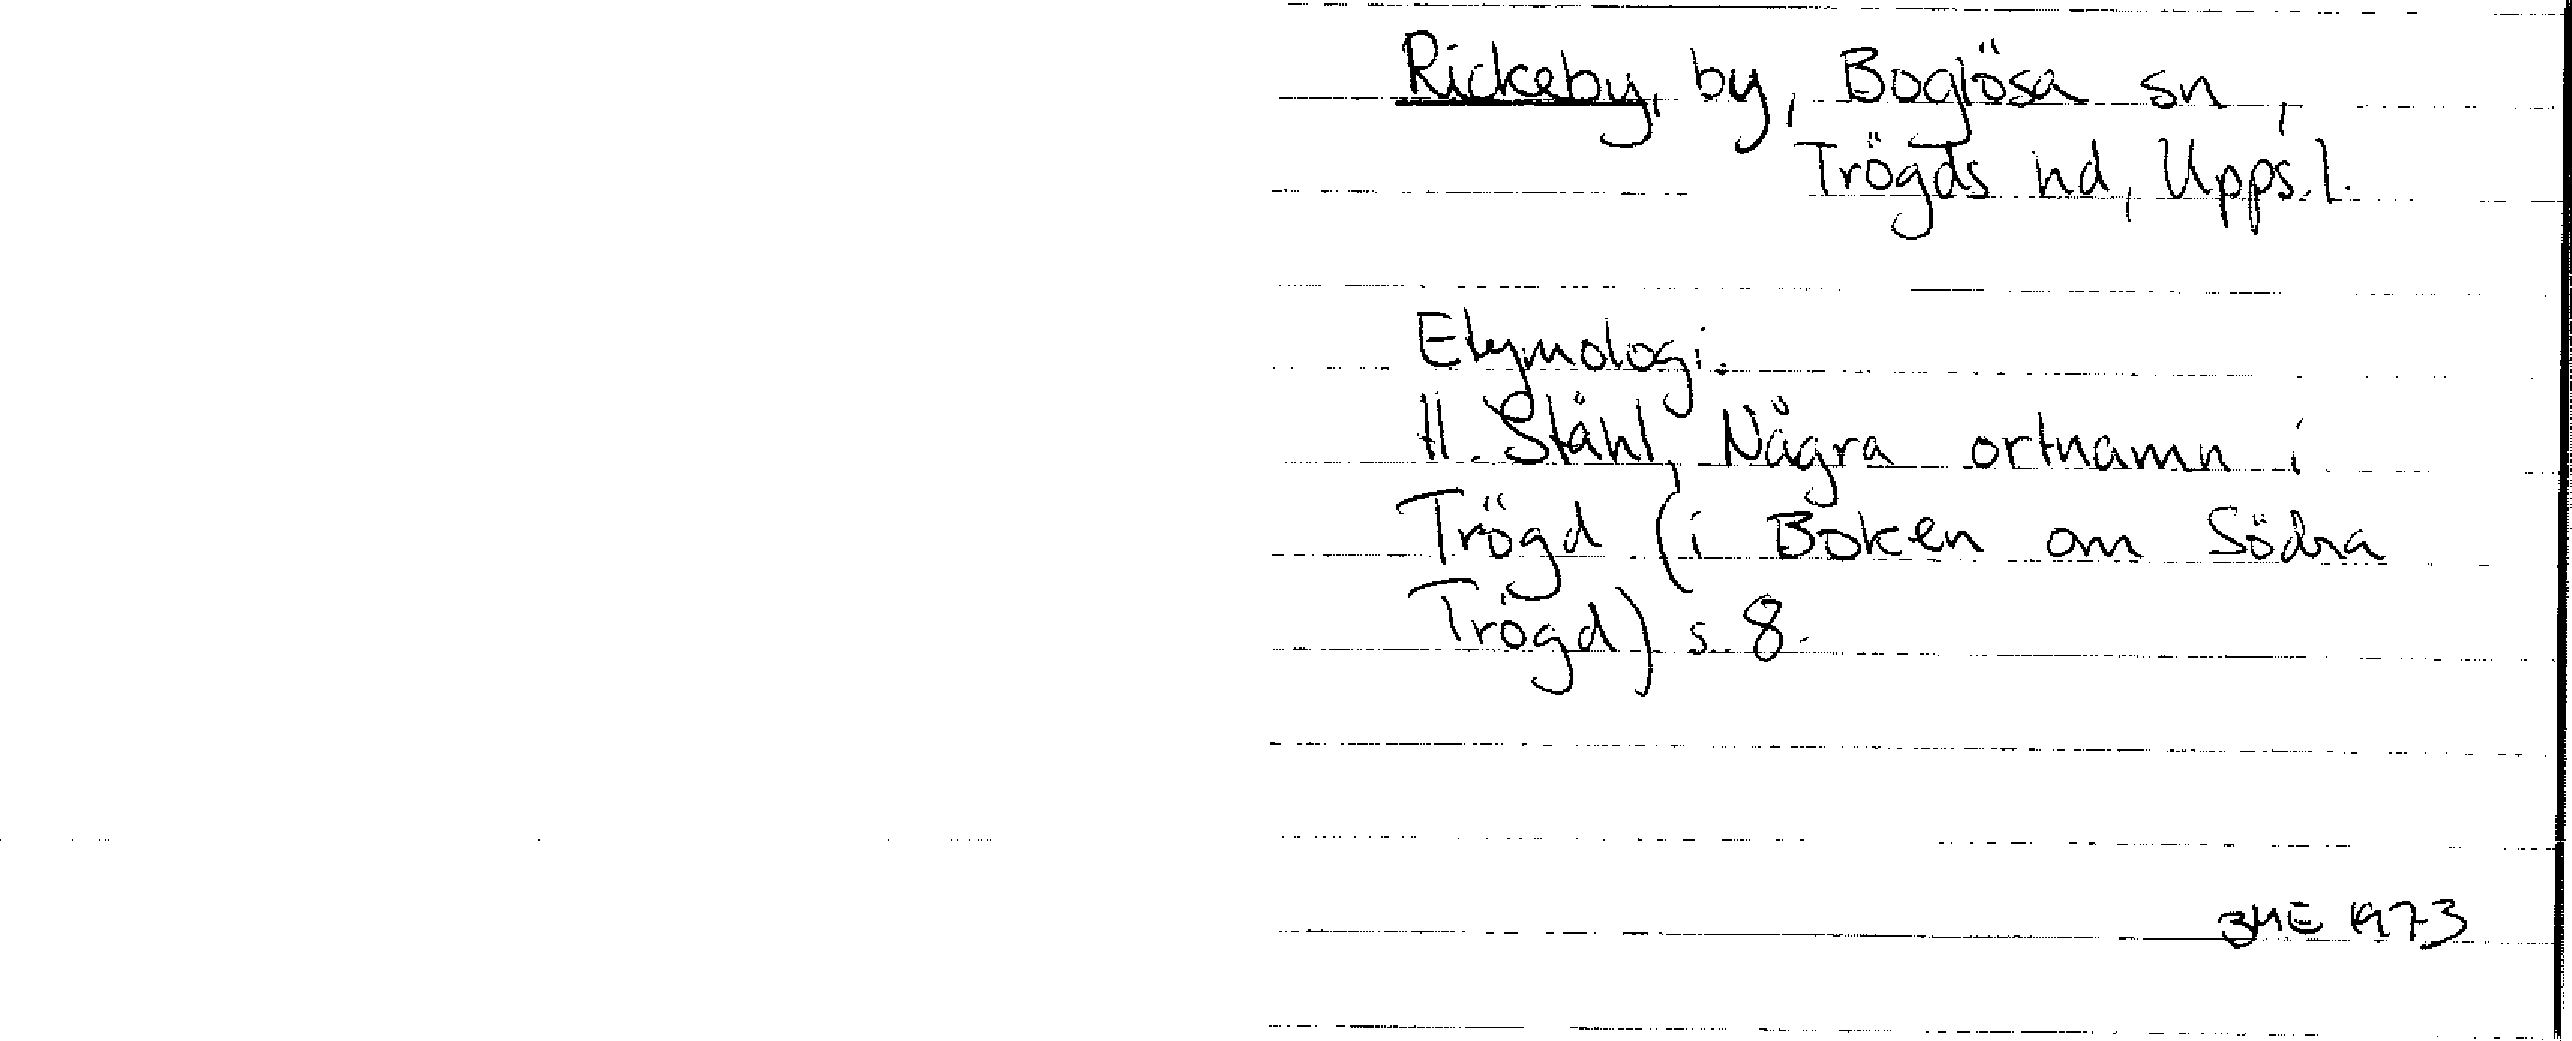 Rickeby, by, Boglösa sn,
Trögds hd, Upps.l.
Etymologi.
H. Ståhl, Några ortnamn i
Trögd (i Boken om Södra
Trögd) s. 8.
1973